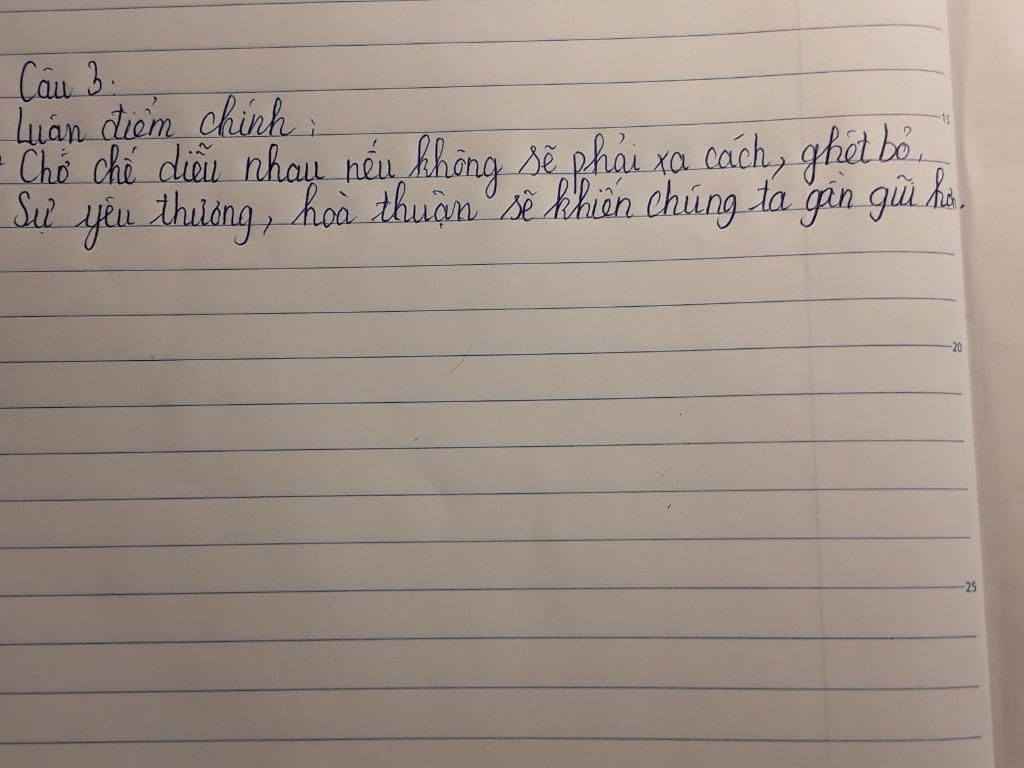 Câu 3:
Luận điểm chính:
+ Chớ chế diễu nhau nếu không sẽ phải xa cách, ghét bỏ.
Sự yêu thương, hoà thuận sẽ khiến chúng ta gần gũi hơn.
15
20
25